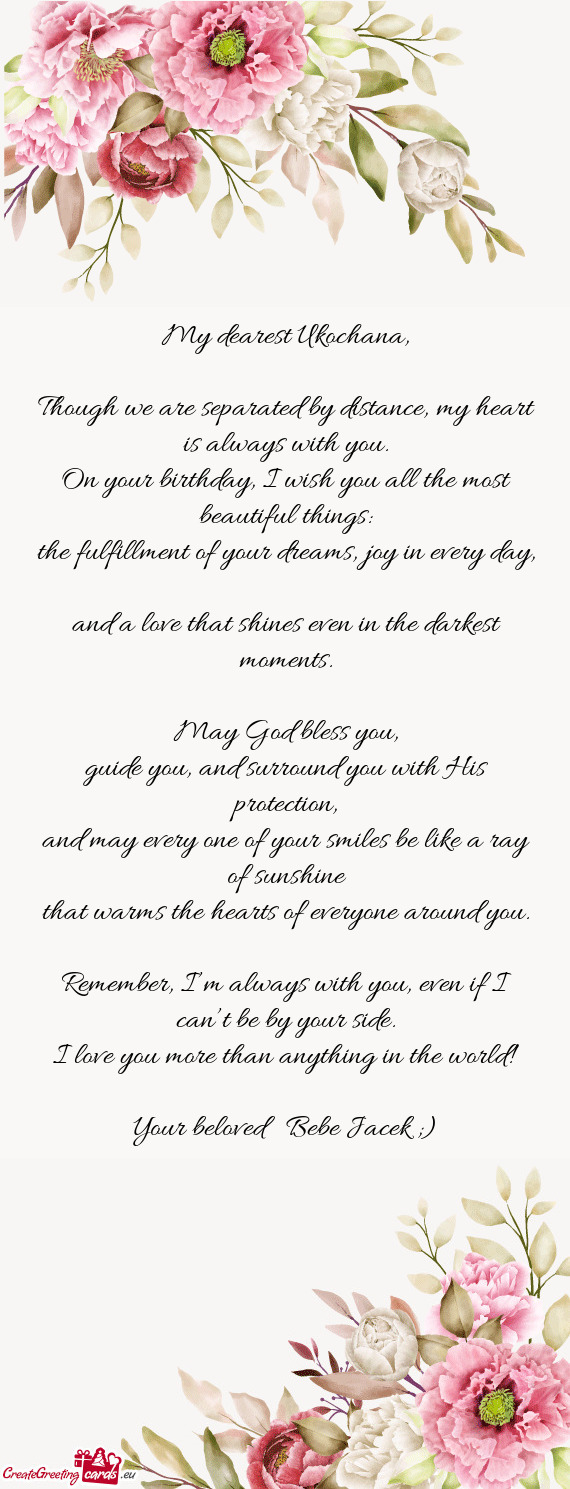 My dearest Ukochana,
Though we are separated by distance, my heart
is always with you.
On your birthday, I wish you all the most
beautiful things:
the fulfillment of your dreams, joy in every day,
and a love that shines even in the darkest
moments.
May God bless you,
guide you, and surround you with His
protection,
and may every one of your smiles be like a ray
of sunshine
that warms the hearts of everyone around you.
Remember, I'm always with you, even if I
can't be by your side.
I love you more than anything in the world!
Your beloved Bebe Jacek ;)
CreateGreeting cards .eu